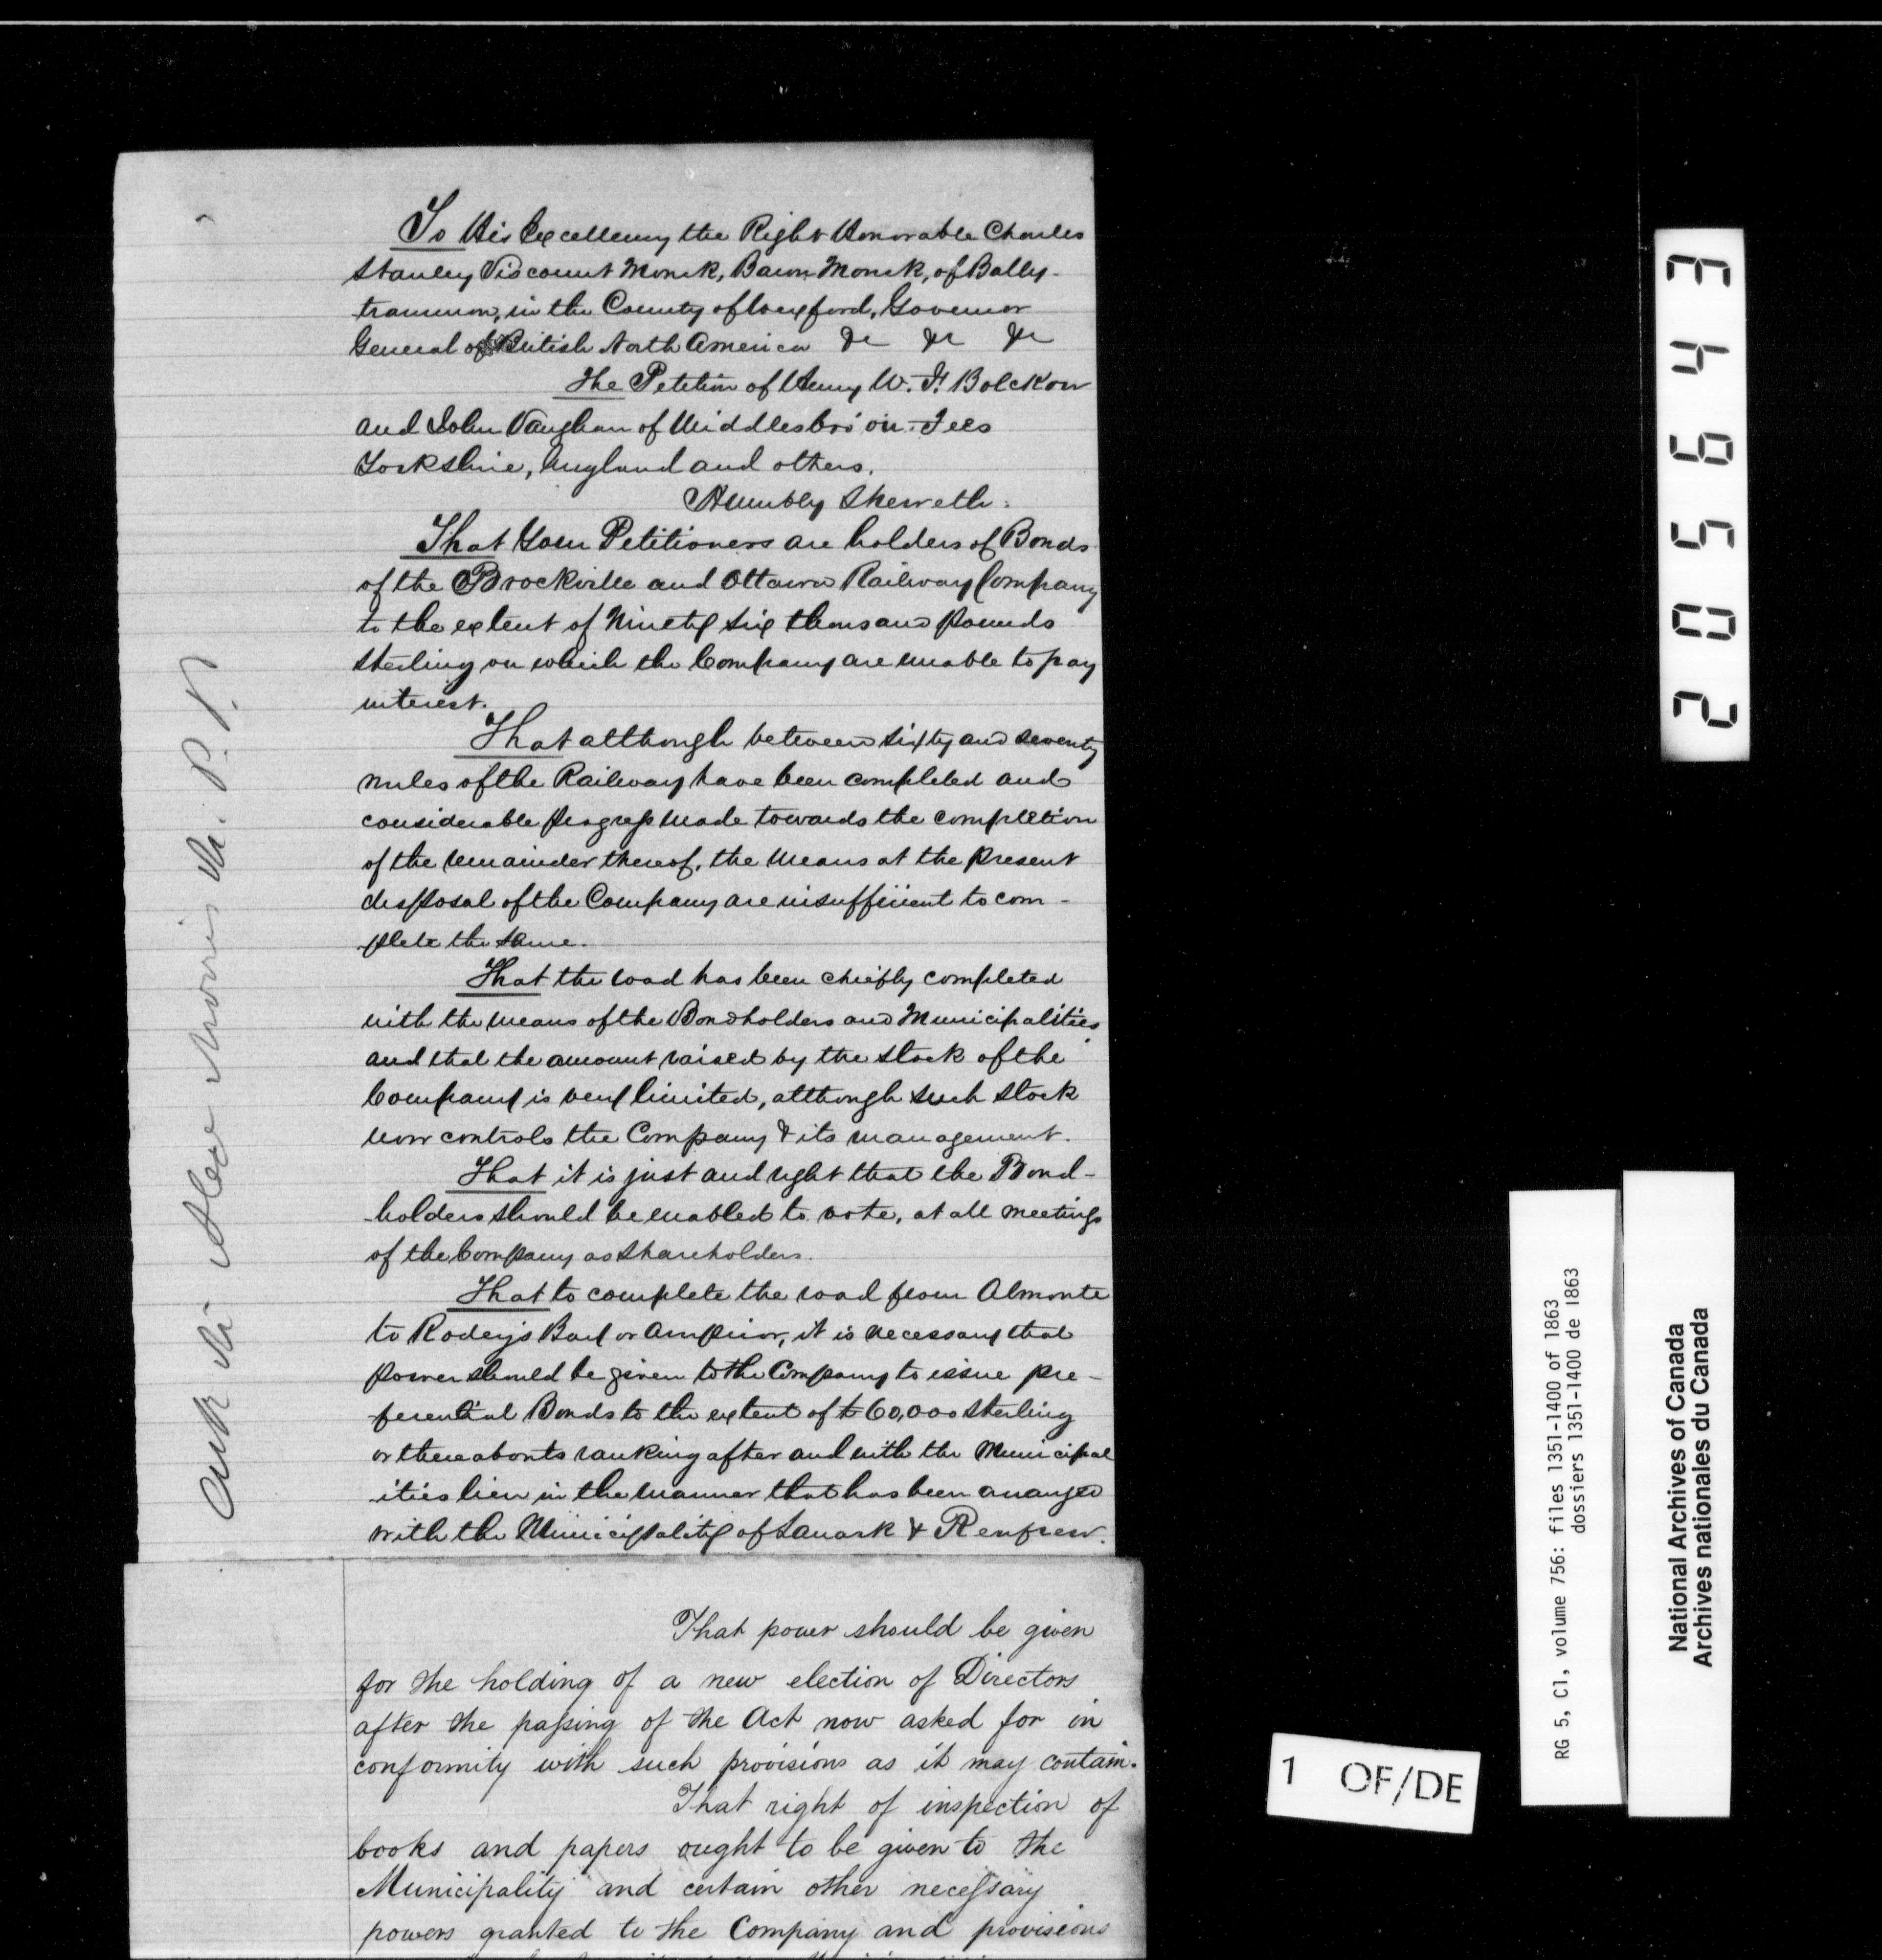 To His Excellency the Right Honorable Charles
Stanley Viscount Monck, Baron Monck, of Bally-
trammon, in the County of Wexford, Governor
General of British North America &c &c &c
The Petition of Henry W. F. Bolckow
and John Vaughan of Middlesbro' on-Tees
Yorkshire, England and others.
Humbly Sheweth:
That Your Petitioners are holders of Bonds
of the Brockville and Ottawa Railway Company
to the extent of Ninety Six thousand pounds
Sterling on which the Company are unable to pay
interest.
That although between sixty and seventy
miles of the Railway have been completed and
considerable progress made towards the completion
of the remainder thereof, the means at the present
disposal of the Company are insufficient to com-
plete the same.
That the road has been chiefly completed
with the means of the Bondholders and Municipalities
and that the amount raised by the stock of the
Company is very limited, although such stock
now controls the Company & its management.
That it is just and right that the Bond-
-holders should be enabled to vote, at all meetings
of the Company as Shareholders.
That to complete the road from Almonte
to Roddy's Bay or Arnprior, it is necessary that
power should be given to the Company to issue pre-
ferential Bonds to the extent of £60,000 Sterling
or thereabouts ranking after and with the Municipal
ities lien in the manner that has been arranged
with the Municipality of Lanark & Renfrew.
That power should be given
for the holding of a new election of Directors
after the passing of the Act now asked for in
conformity with such provisions as it may contain.
That right of inspection of
books and papers ought to be given to the
Municipality and certain other necessary
powers granted to the Company and provisions
Alex Morris M. P. P.
205643
RG 5, C1, volume 756: files 1351-1400 of 1863
dossiers 1351-1400 de 1863
National Archives of Canada
Archives nationales du Canada
1 OF/DE